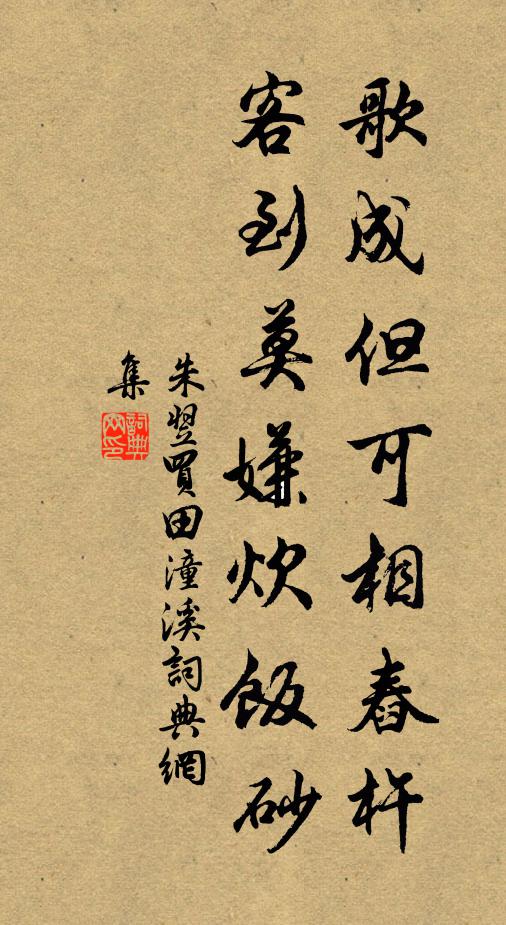 歌成但可相舂杵
客到莫嫌炊飯砂
朱翌買田潼溪詞典網
集
詞典網印